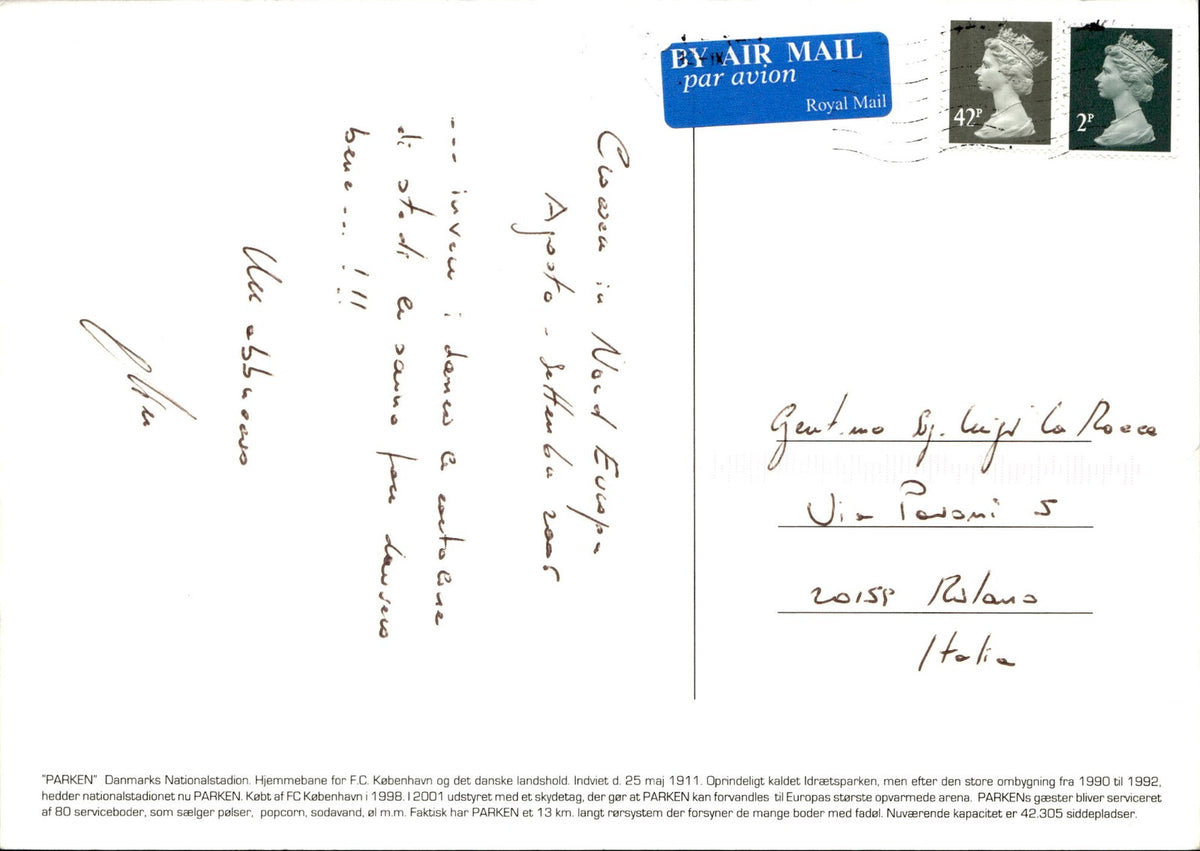 BY AIR MAIL
par avion
Royal Mail
42P
2P
Crociera in Nord Europa
Agosto - Settembre 2005
--- invece i danesi le cartoline
di stadi le sanno fare davvero
bene --- !!!
Un abbraccio
Gent.mo Sg. Luigi La Rocca
Via Pavoni 5
20159 Milano
Italia
"PARKEN" Danmarks Nationalstadion. Hjemmebane for F.C. København og det danske landshold. Indviet d. 25 maj 1911. Oprindeligt kaldet Idrætsparken, men efter den store ombygning fra 1990 til 1992,
hedder nationalstadionet nu PARKEN. Købt af FC København i 1998. I 2001 udstyret med et skydetag, der gør at PARKEN kan forvandles til Europas største opvarmede arena. PARKENs gæster bliver serviceret
af 80 serviceboder, som sælger pølser, popcorn, sodavand, øl m.m. Faktisk har PARKEN et 13 km. langt rørsystem der forsyner de mange boder med fadøl. Nuværende kapacitet er 42.305 siddepladser.